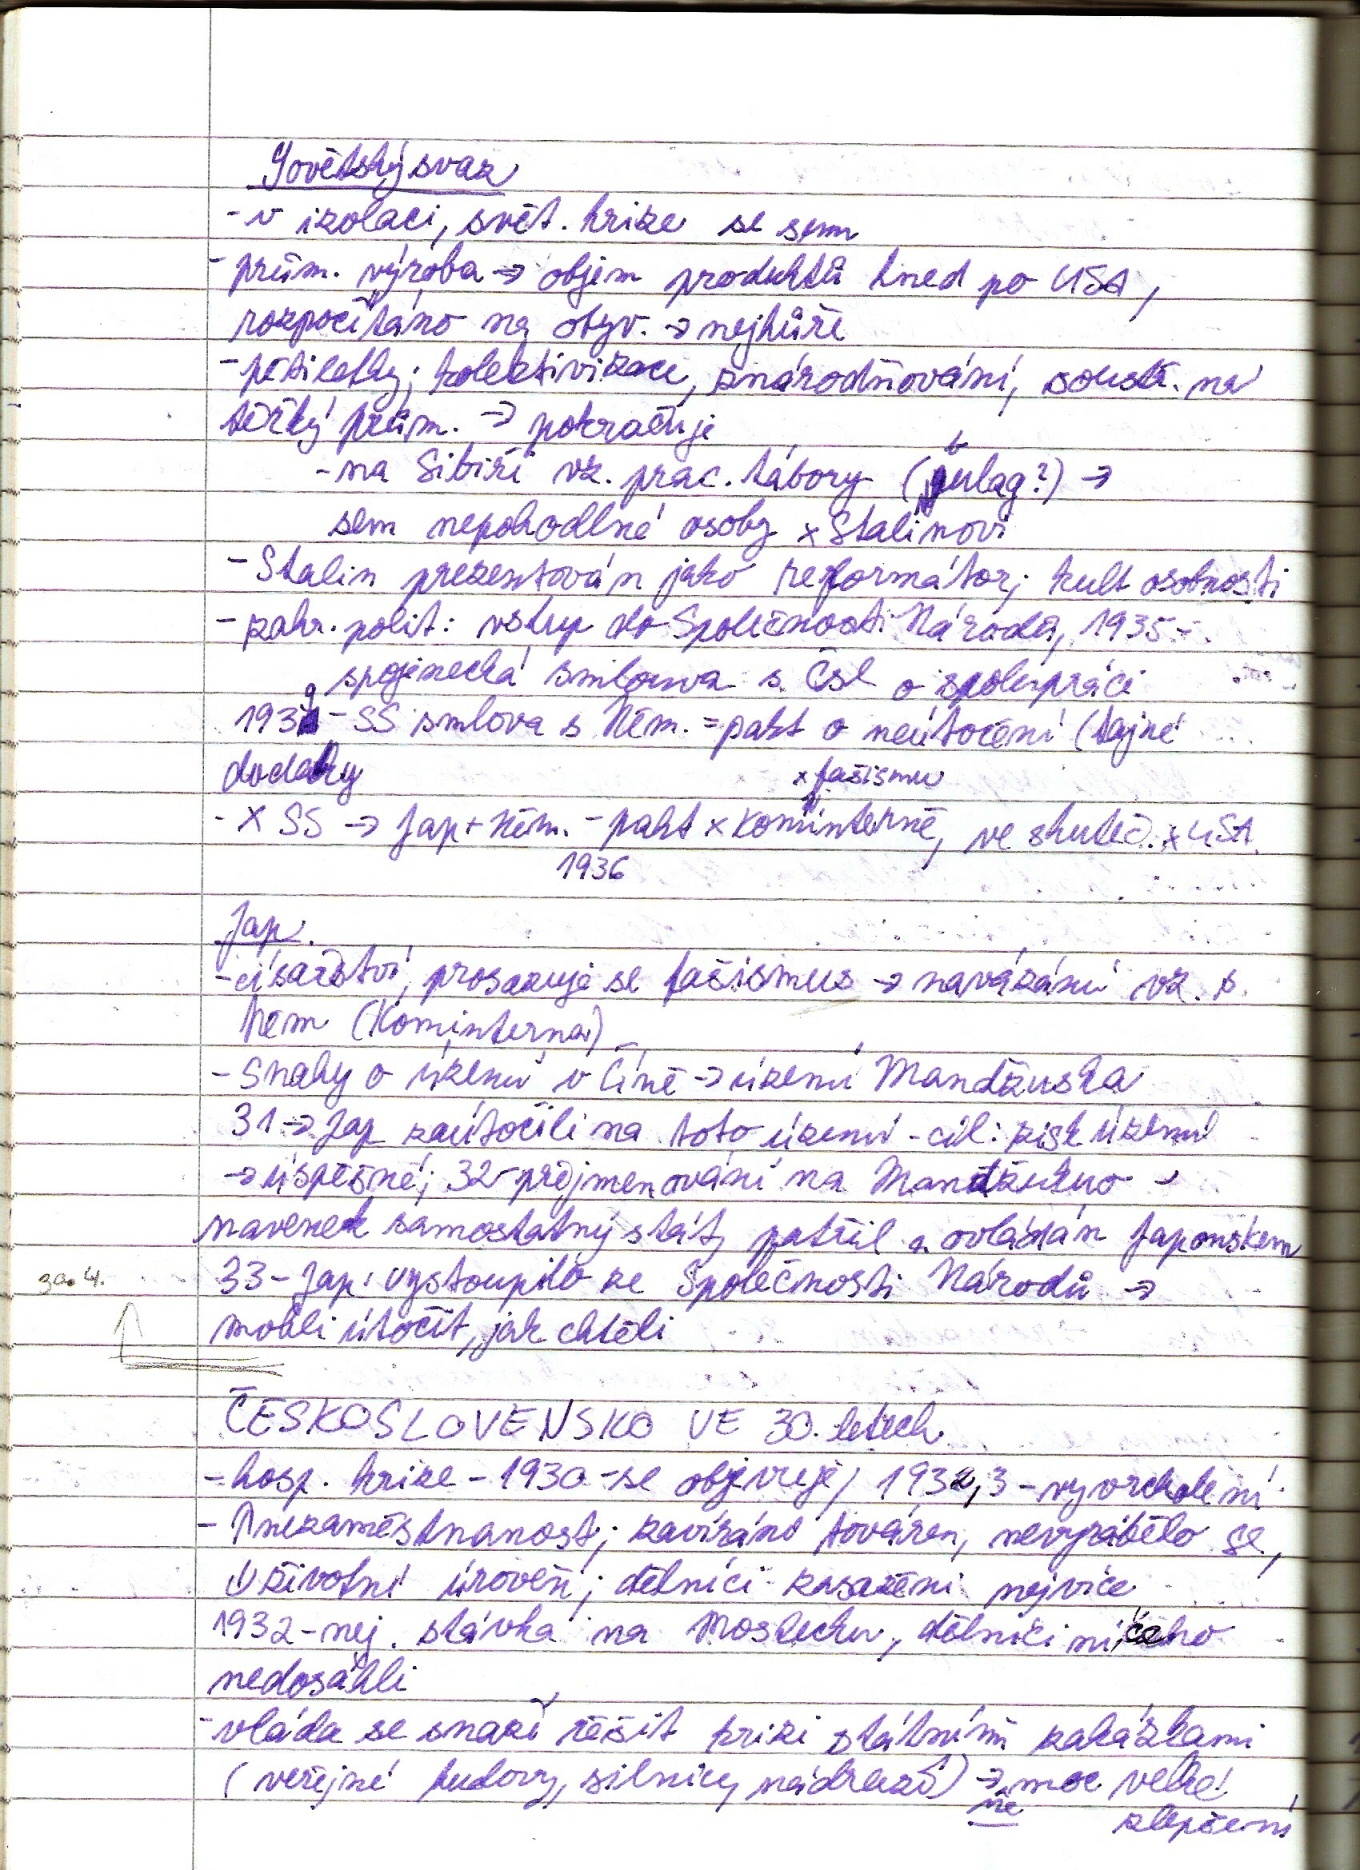 Sovětský svaz
- v izolaci, svět. krize se sem
- prům. výroba → objem produktů hned po USA,
rozpočítáno na obyv. → nejhůře
- pětiletky; kolektivizace, znárodňování, soustř. na
těžký prům. → pokračuje
- na Sibiři vz. prac. tábory (gulag?) →
sem nepohodlné osoby x Stalinovi
- Stalin prezentován jako reformátor; kult osobnosti
- zahr. polit: vstup do Společnosti Národů, 1935 -
spojenecká smlouva s Čsl o spolupráci
1939 - SS smlova s Něm. = pakt o neútočení (tajné
dodatky
x fašismu
- X SS → Jap + Něm. - pakt x Kominterně, ve skuteč. x USA
1936
Jap.
- císařství, prosazuje se fašismus → navázání vz. s
Něm (Kominterna)
- Snahy o území v Číně → území Mandžuska
31 → Jap zaútočili na toto území - cíl: zisk území
→ úspěšné; 32 - přejmenování na Mandžukuo -
navenek samostatný stát, patřil a ovládán Japonskem
33 - Jap. vystoupilo ze Společnosti Národů →
za. 4.
mohli útočit, jak chtěli
ČESKOSLOVENSKO VE 30. letech
- hosp. krize - 1930 - se objevuje, 1932,3 - vyvrcholení
- ↑ nezaměstnanost; zavíráno továren, nevyrábělo se,
↓ životní úroveň; dělníci zasaženi nejvíce
1932 - nej. stávka na Mostecku, dělníci ničeho
nedosáhli
- vláda se snaží řešit krizi státními zakázkami
(veřejné budovy, silnice, nádraží) → moc velké
ne
zlepšení